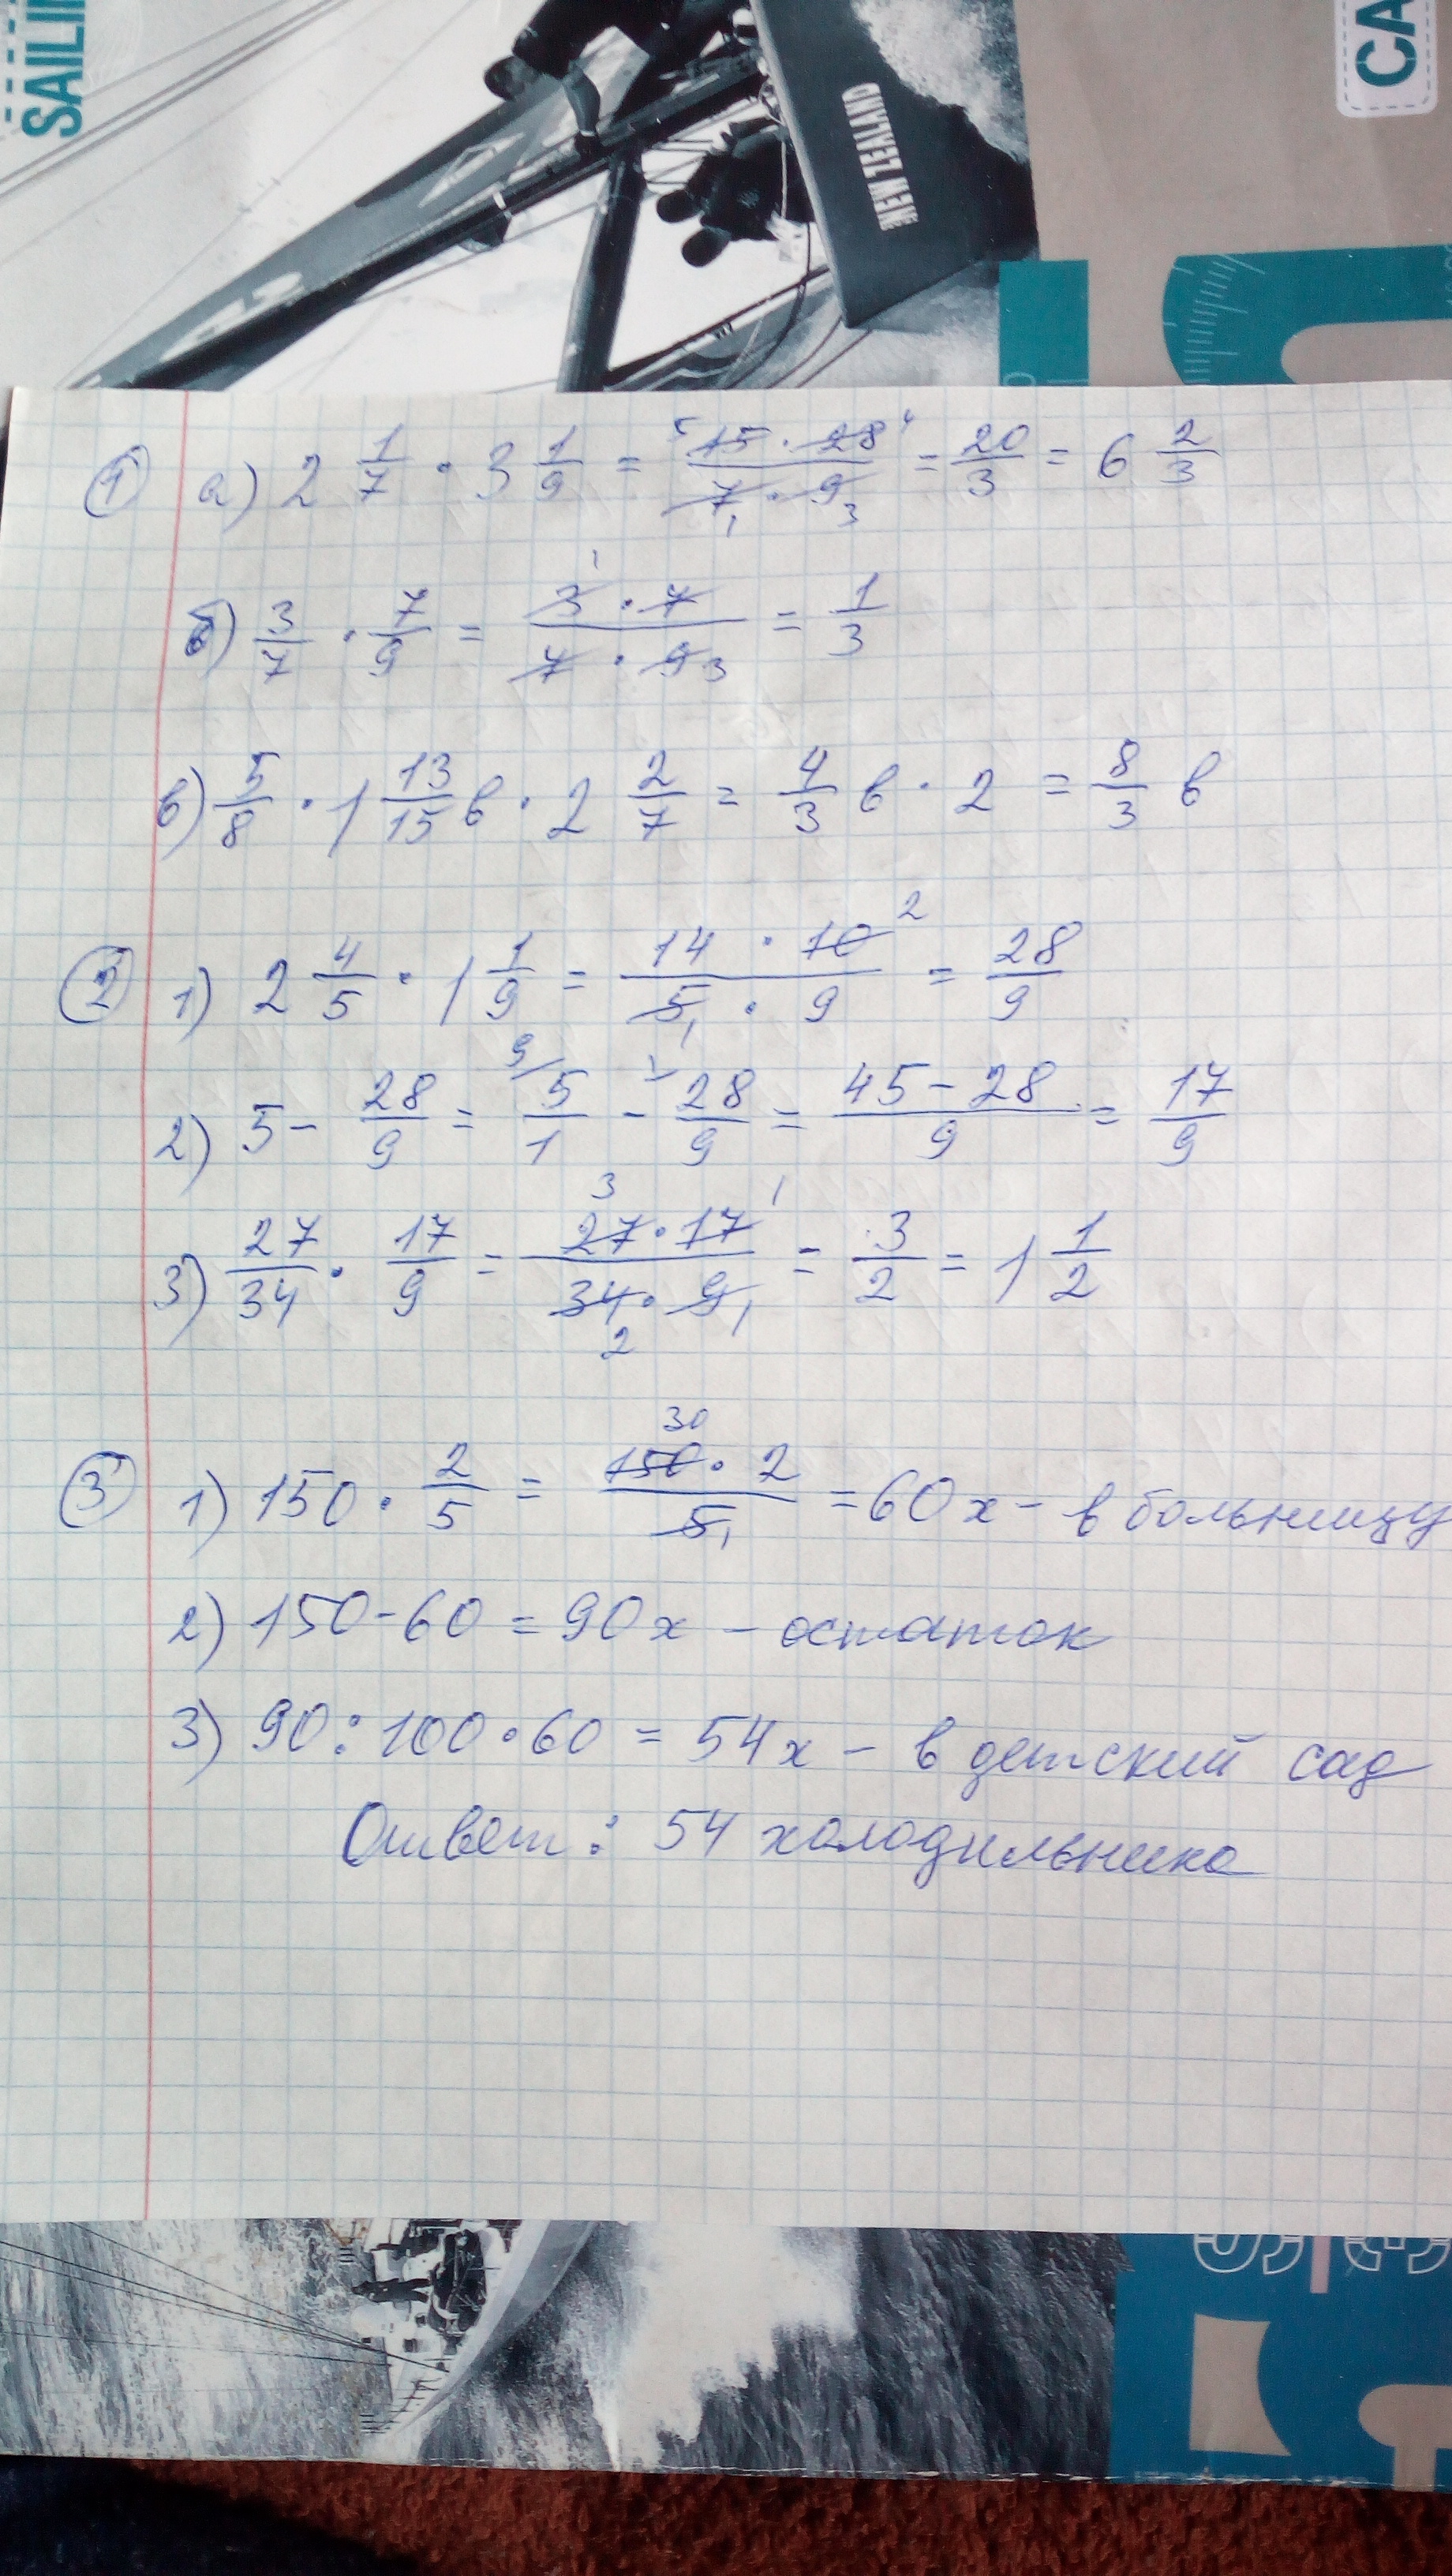 SAILIN
NEW ZEALAND
CA
① а) 2 1/7 · 3 1/9 = 15 · 28 / 7 · 9 = 20/3 = 6 2/3
б) 3/7 · 7/9 = 3 · 7 / 7 · 9 = 1/3
в) 5/8 · 1 13/15 в · 2 2/7 = 4/3 в · 2 = 8/3 в
② 1) 2 4/5 · 1 1/9 = 14 · 10 / 5 · 9 = 28/9
2) 5 - 28/9 = 5/1 - 28/9 = 45 - 28 / 9 = 17/9
3) 27/34 · 17/9 = 27 · 17 / 34 · 9 = 3/2 = 1 1/2
③ 1) 150 · 2/5 = 150 · 2 / 5 = 60х - в больницу
2) 150 - 60 = 90х - остаток
3) 90 : 100 · 60 = 54х - в детский сад
Ответ : 54 холодильника